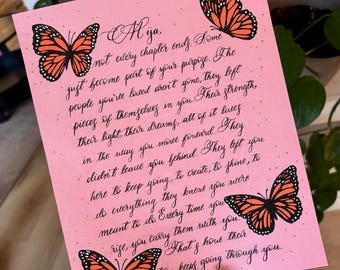 Mija,
not every chapter ends. Some
just become part of your purpose. The
people you've loved aren't gone, they left
pieces of themselves in you. Their strength,
their light, their dreams, all of it lives
in the way you move forward. They
didn't leave you behind. They left you
here to keep going, to create, to shine, to
do everything they knew you were
meant to do. Every time you
rise, you carry them with you.
That's how their
keeps going through you.